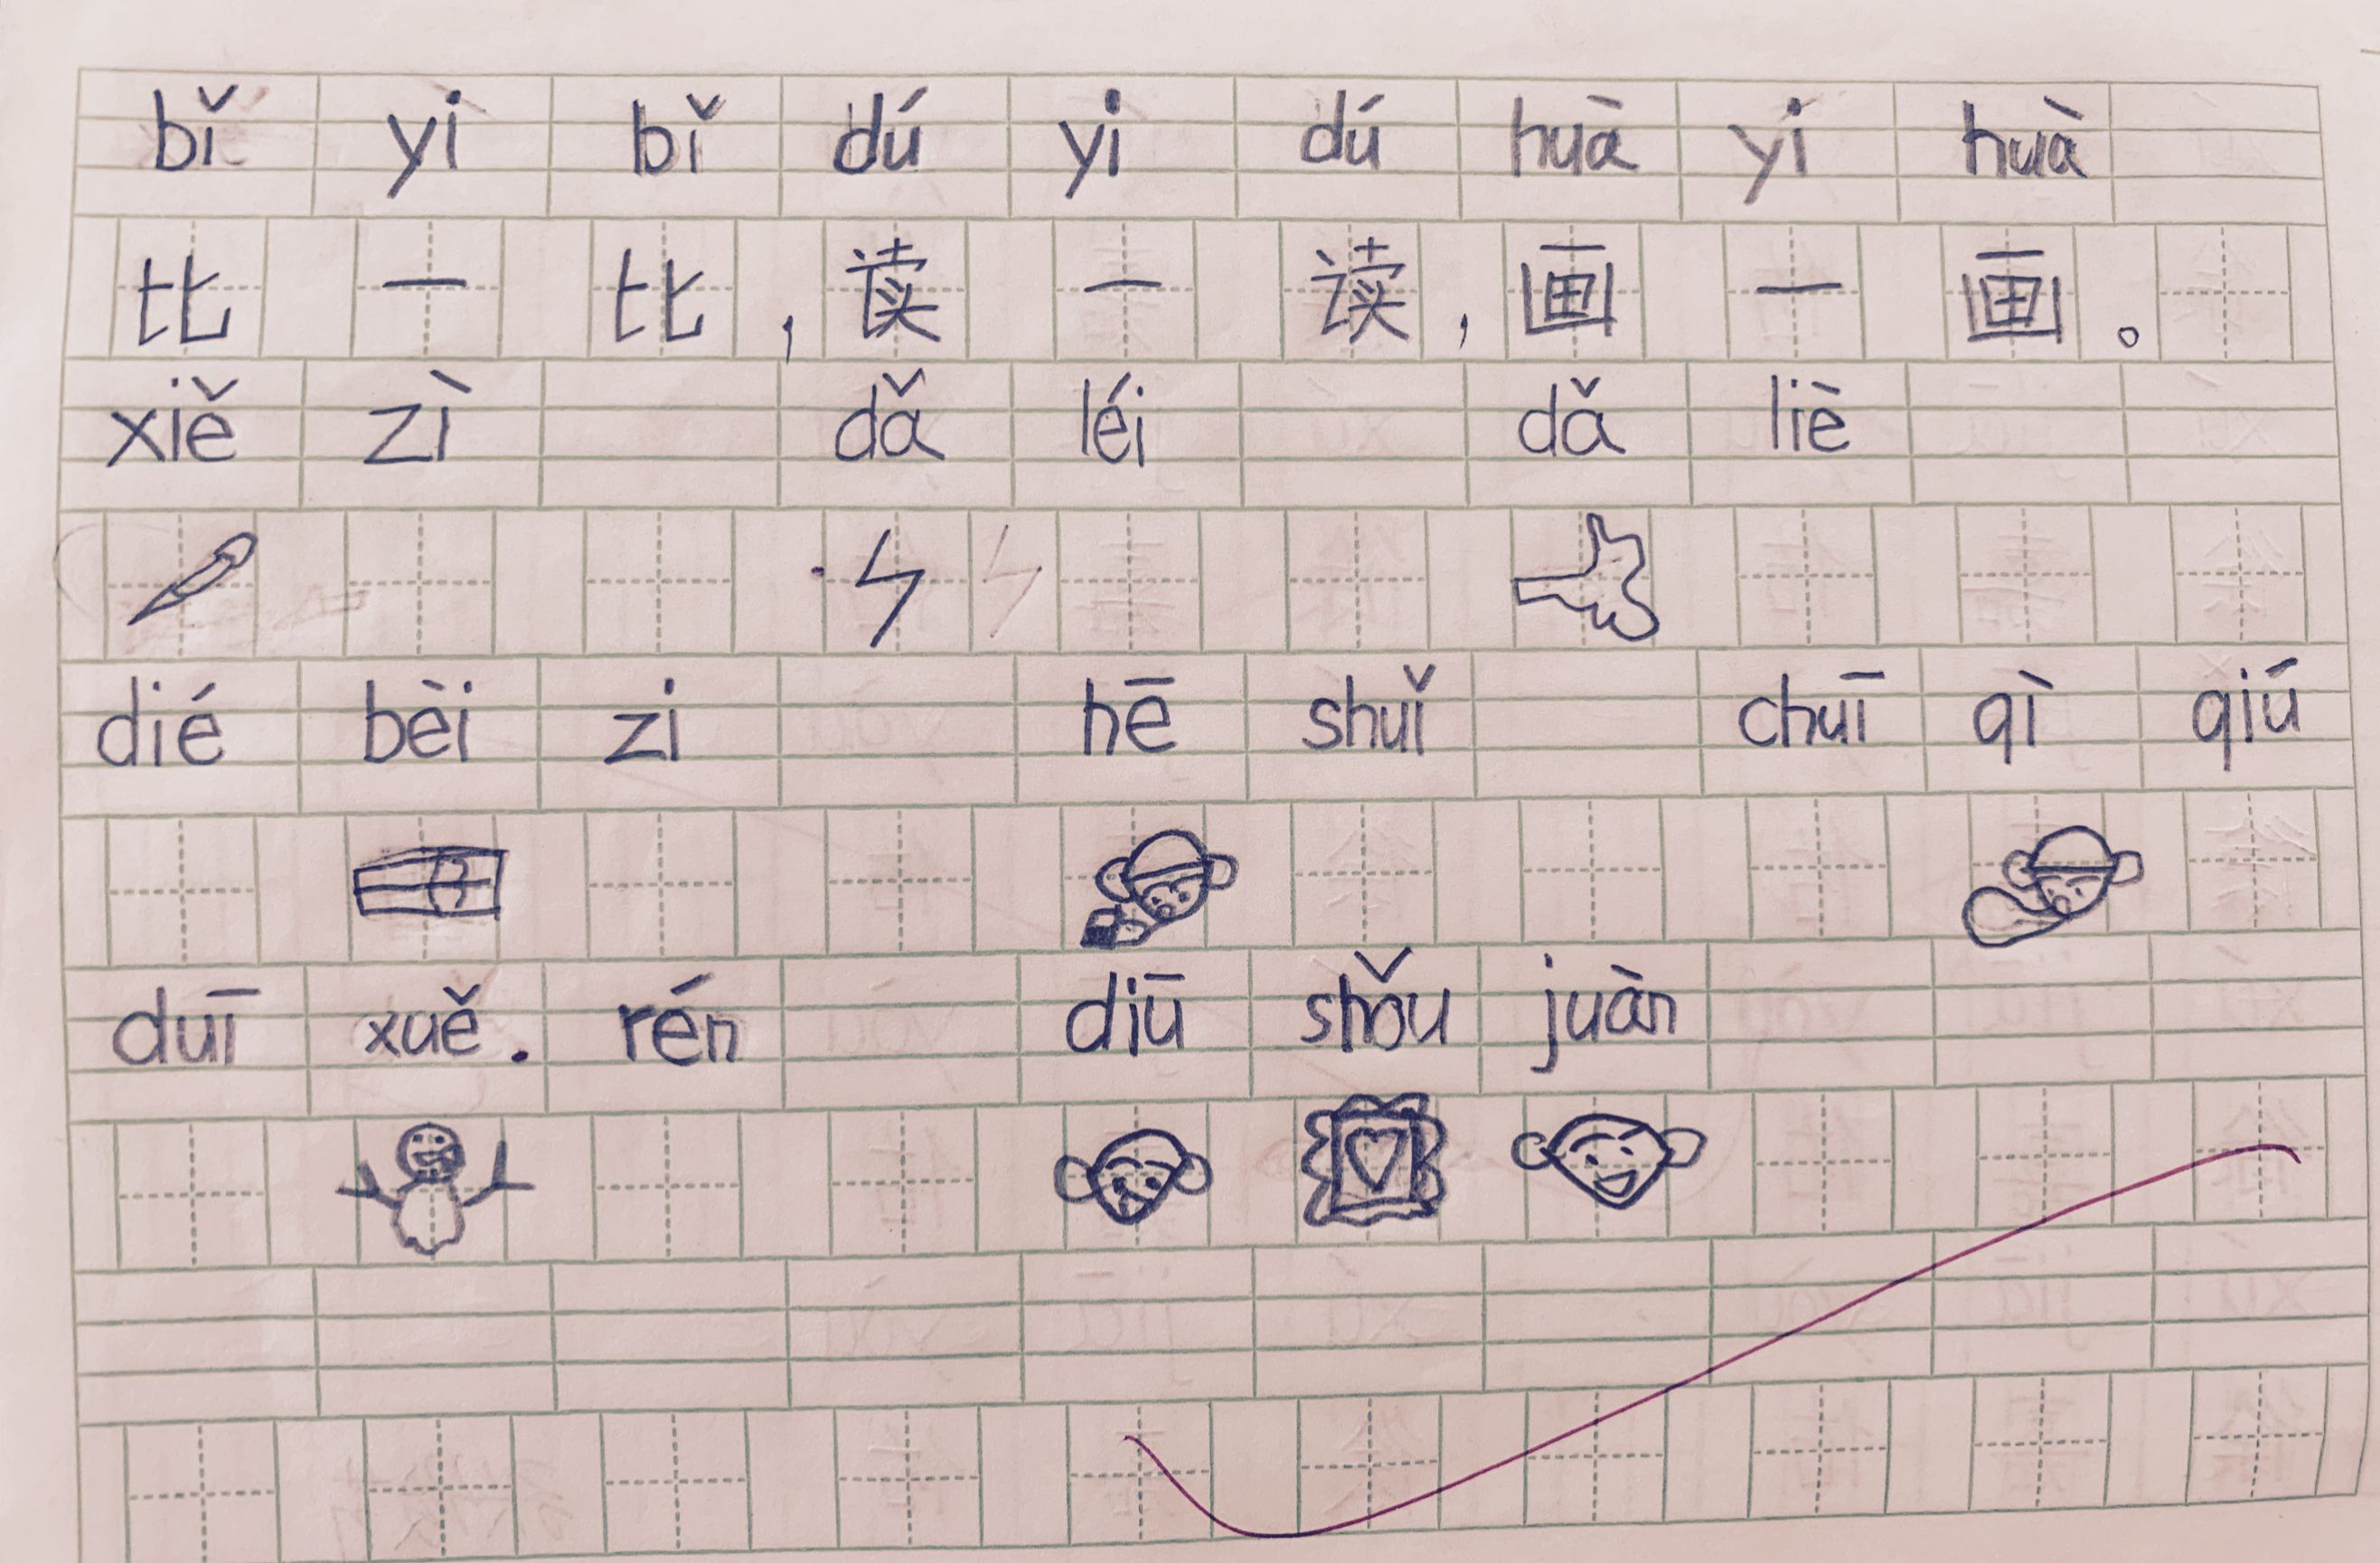 bǐ yi bǐ dú yi dú huà yi huà
比一比，读一读，画一画。
xiě zì dǎ léi dǎ liè
dié bèi zi hē shuǐ chuī qì qiú
duī xuě. rén diū shǒu juàn